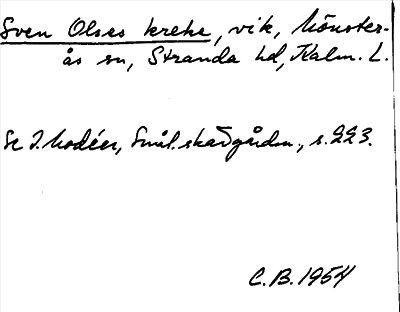 Sven Olses kreke, vik, Mönster-
ås sn, Stranda hd, Kalm. L.
Se I. Modéer, Smål. skärgårdsn., s. 223.
C.B. 1954